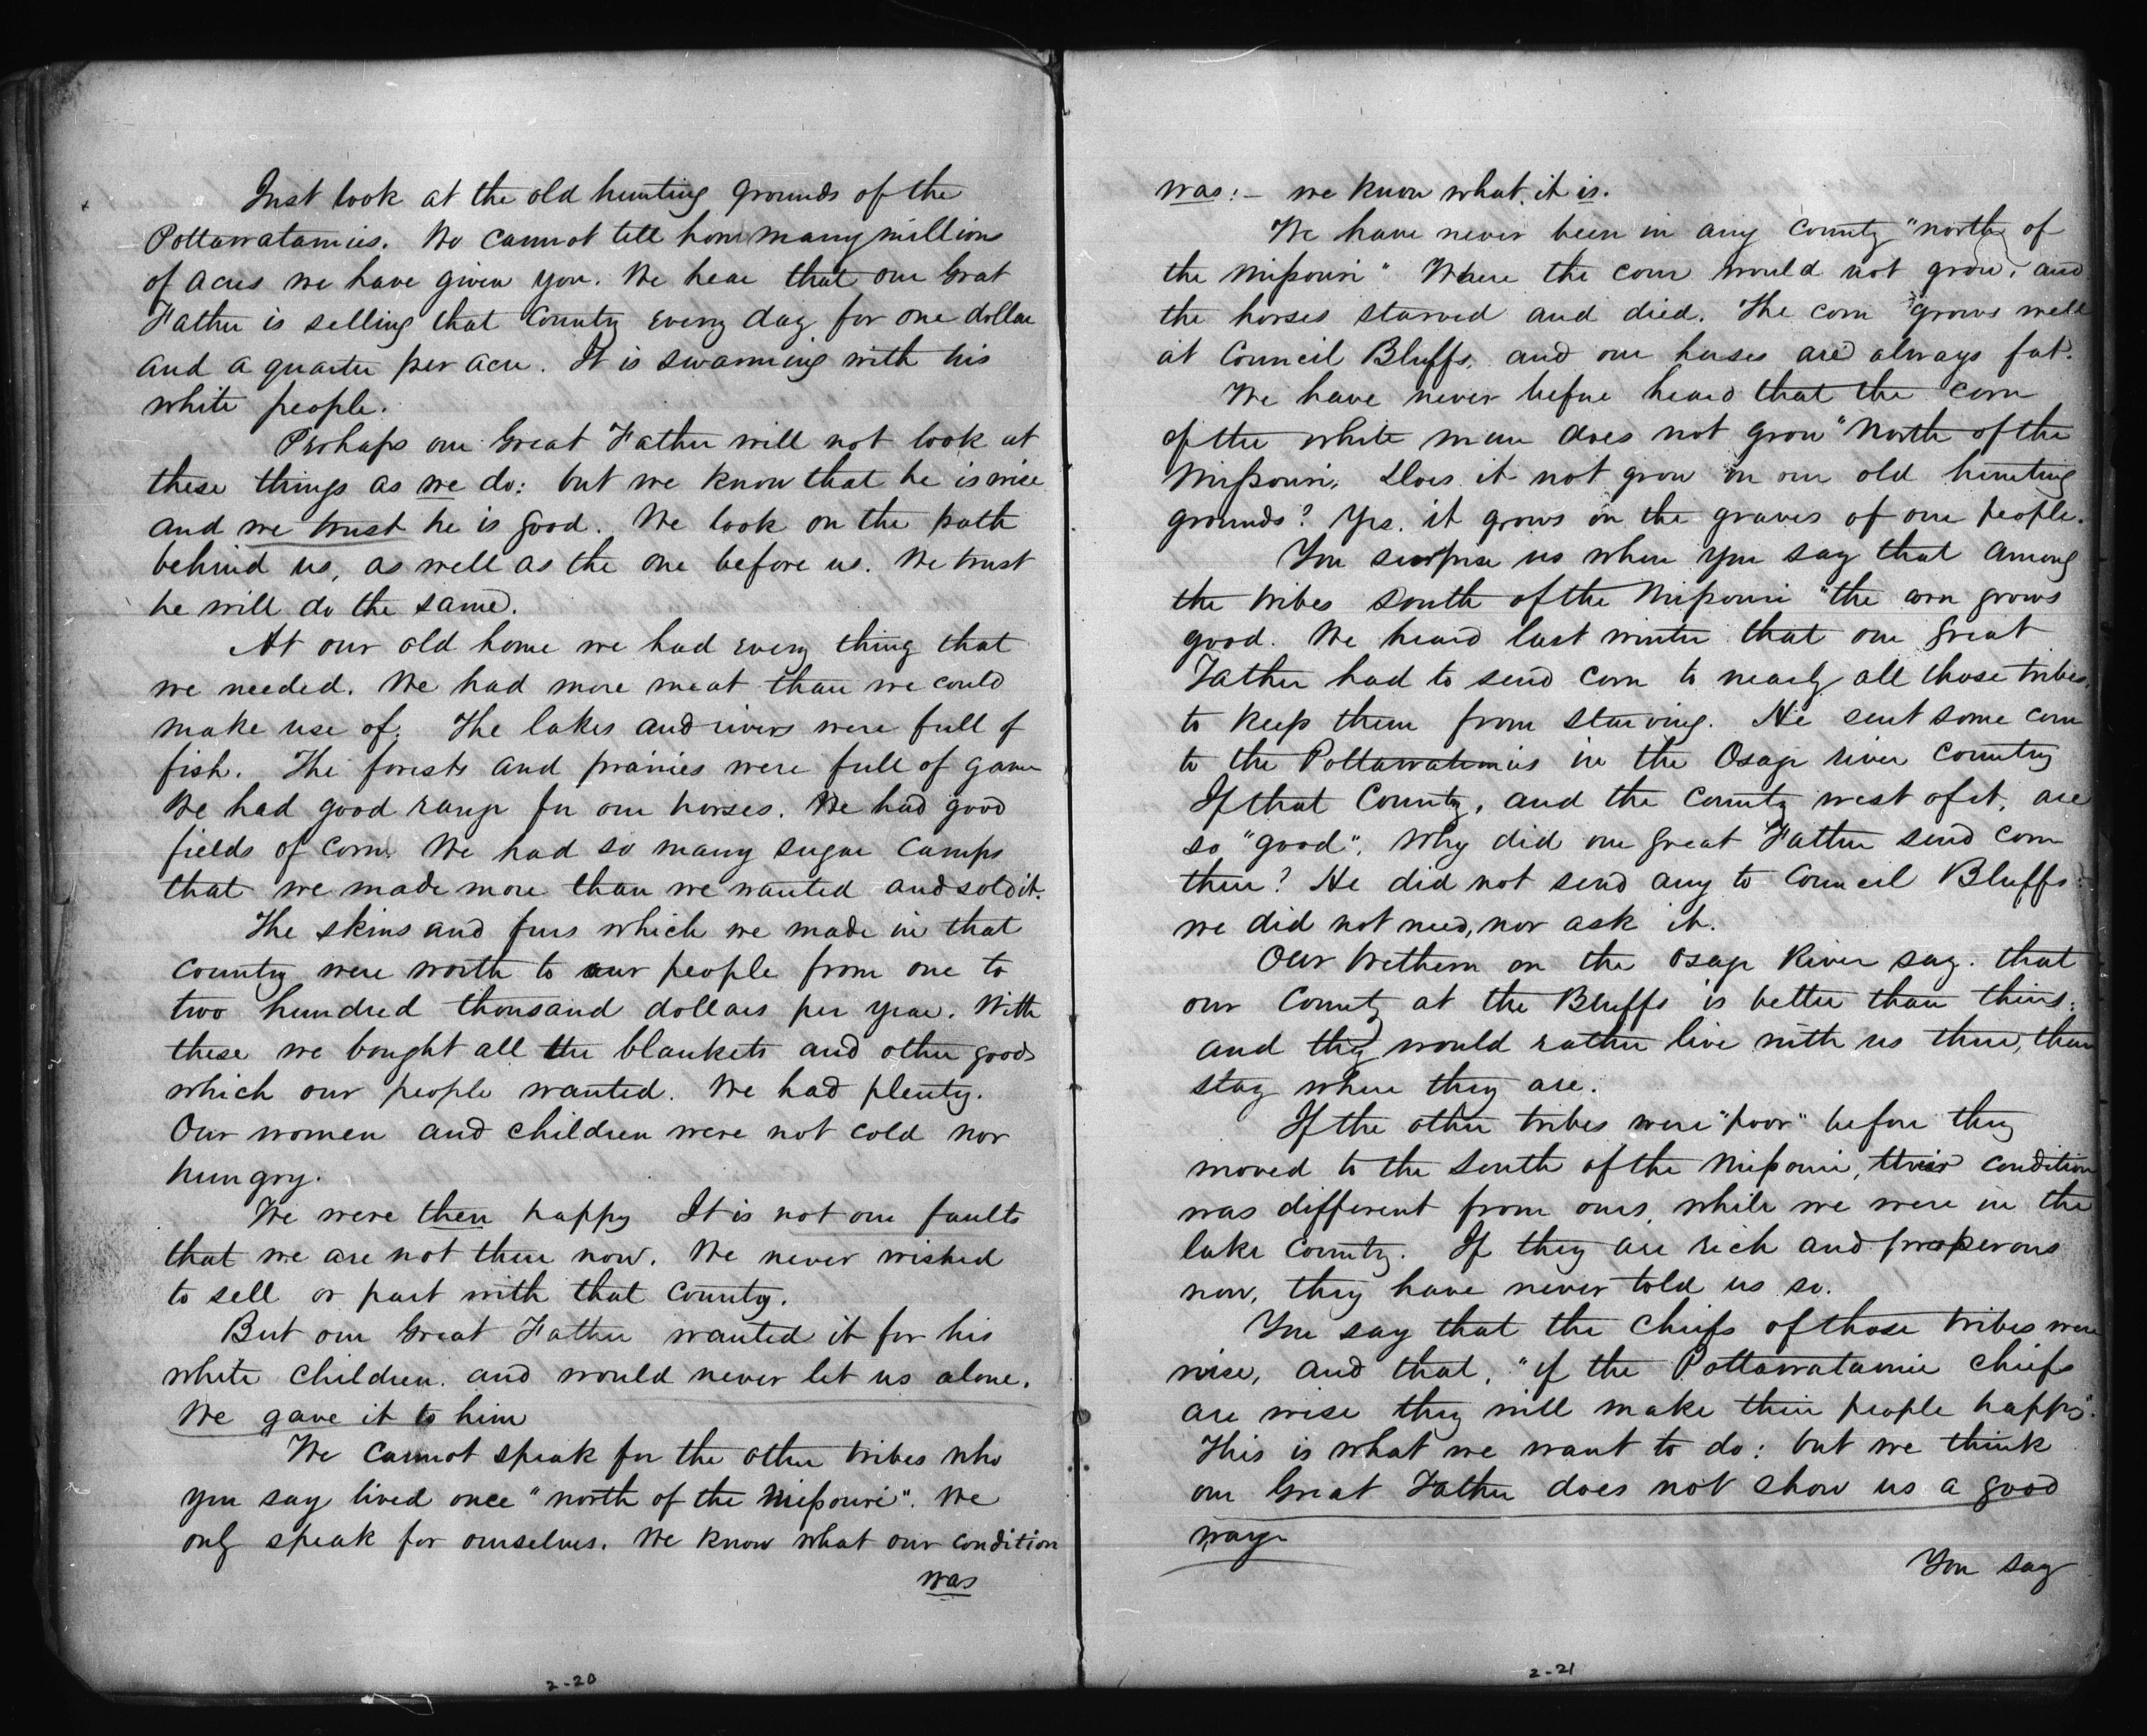 Just look at the old hunting grounds of the
Pottawatamies. We cannot tell how many millions
of acres we have given you. We hear that our Great
Father is selling that Country every day for one dollar
and a quarter per acre. It is swarming with his
white people.
Perhaps our Great Father will not look at
these things as we do: but we know that he is wise
and we trust he is good. We look on the path
behind us, as well as the one before us. We trust
he will do the same.
At our old home we had every thing that
we needed. We had more meat than we could
make use of. The lakes and rivers were full of
fish. The forests and prairies were full of game
We had good range for our horses. We had good
fields of corn. We had so many sugar camps
that we made more than we wanted and sold it.
The skins and furs which we made in that
country were worth to our people from one to
two hundred thousand dollars per year. With
these we bought all the blankets and other goods
which our people wanted. We had plenty.
Our women and children were not cold nor
hungry.
We were then happy It is not our faults
that we are not there now. We never wished
to sell or part with that country.
But our Great Father wanted it for his
white children. and would never let us alone.
We gave it to him
We cannot speak for the other tribes who
you say lived once "north of the Missouri". We
only speak for ourselves. We know what our condition
was
2-20
was:- we know what it is.
We have never been in any country "north of
the Missouri" Where the corn would not grow, and
the horses starved and died. The corn grows well
at Council Bluffs, and our horses are always fat.
We have never before heard that the corn
of the white man does not grow "North of the
Missouri. Does it not grow in our old hunting
grounds? Yes. it grows on the graves of our people.
You surprise us when you say that among
the tribes South of the Missouri "the corn grows
good. We heard last winter that our great
Father had to send corn to nearly all those tribes,
to keep them from starving. He sent some corn
to the Pottawatamies in the Osage river country
If that Country, and the country west of it, are
so "good", Why did our great Father send corn
there? He did not send any to Council Bluffs:
we did not need, nor ask it.
Our brethern on the Osage River say. that
our Country at the Bluffs is better than theirs:
and they would rather live with us there, than
stay where they are.
If the other tribes were "poor" before they
moved to the South of the Missouri, their condition
was different from ours, while we were in the
lake country. If they are rich and prosperous
now, they have never told us so.
You say that the Chiefs of those tribes were
wise, and that, "if the Pottawatamie chiefs
are wise they will make their people happy".
This is what we want to do: but we think
our Great Father does not show us a good
way.
You say
2-21